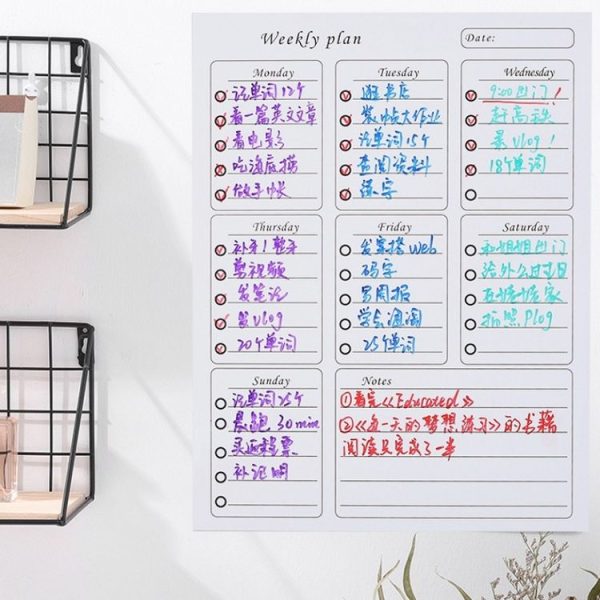 Weekly plan
Date:
Monday
记单词12个
看一篇英文文章
看电影
吃海底捞
做手帐
Tuesday
逛书店
装帧大作业
记单词15个
查阅资料
练字
Wednesday
9:00出门!
赶高铁
录vlog!
18个单词
Thursday
补牙!整牙
剪视频
发笔记
发vlog
20个单词
Friday
发案搭web
码字
写周报
25个单词
Saturday
和姐姐出门
给外公过生日
拍照Plog
Sunday
记单词25个
晨跑30min
买返程票
Notes
①看完《Educated》
②《每一天的梦想练习》的书籍
阅读只完成了一半